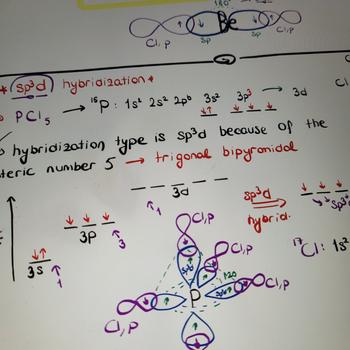 180°
Be
sp sp
Cl,P Cl,P
* sp³d hybridization *
PCl₅ → ¹⁵P: 1s² 2s² 2p⁶ 3s² 3p³ → 3d Cl
hybridization type is sp³d because of the
teric number 5 → trigonal bipyramidal
3d
sp³d
hybrid.
3p
3
1
3s
1
Cl,P
Cl,P
120
Cl,P
P
Cl,P
¹⁷Cl: 1s²